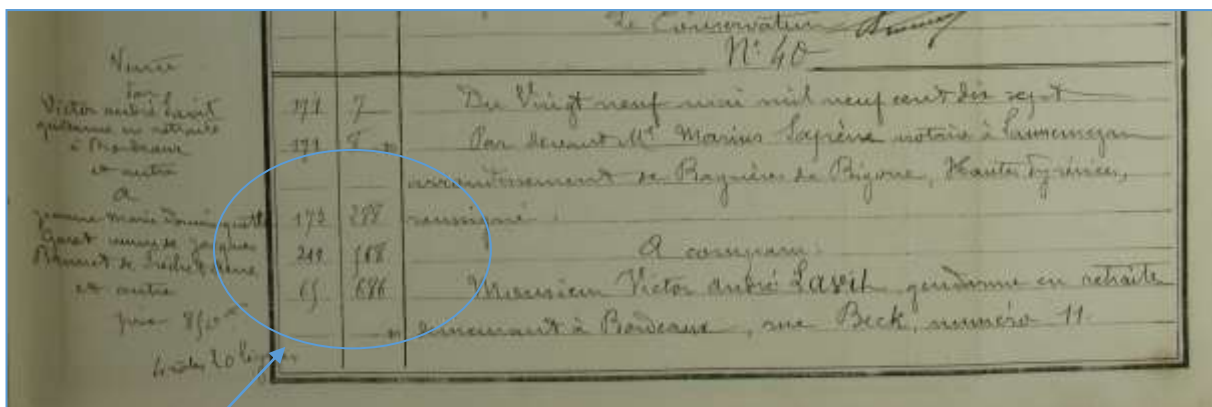 Le Conservateur
N° 40
Vente
par
Victor André Lavit
gendarme en retraite
à Bordeaux
et autre
A
Jeanne Marie Dominiquette
veuve de Jacques
et autre
pour
171 7
171 8
172 288
211 568
65 686
Du Vingt neuf mai mil neuf cent dix sept
Par devant Me Marius notaire à Lannemezan
arrondissement de Bagnères de Bigorre, Hautes Pyrénées,
soussigné.
A comparu:
Monsieur Victor André Lavit gendarme en retraite
demeurant à Bordeaux, rue Beck, numéro 11.